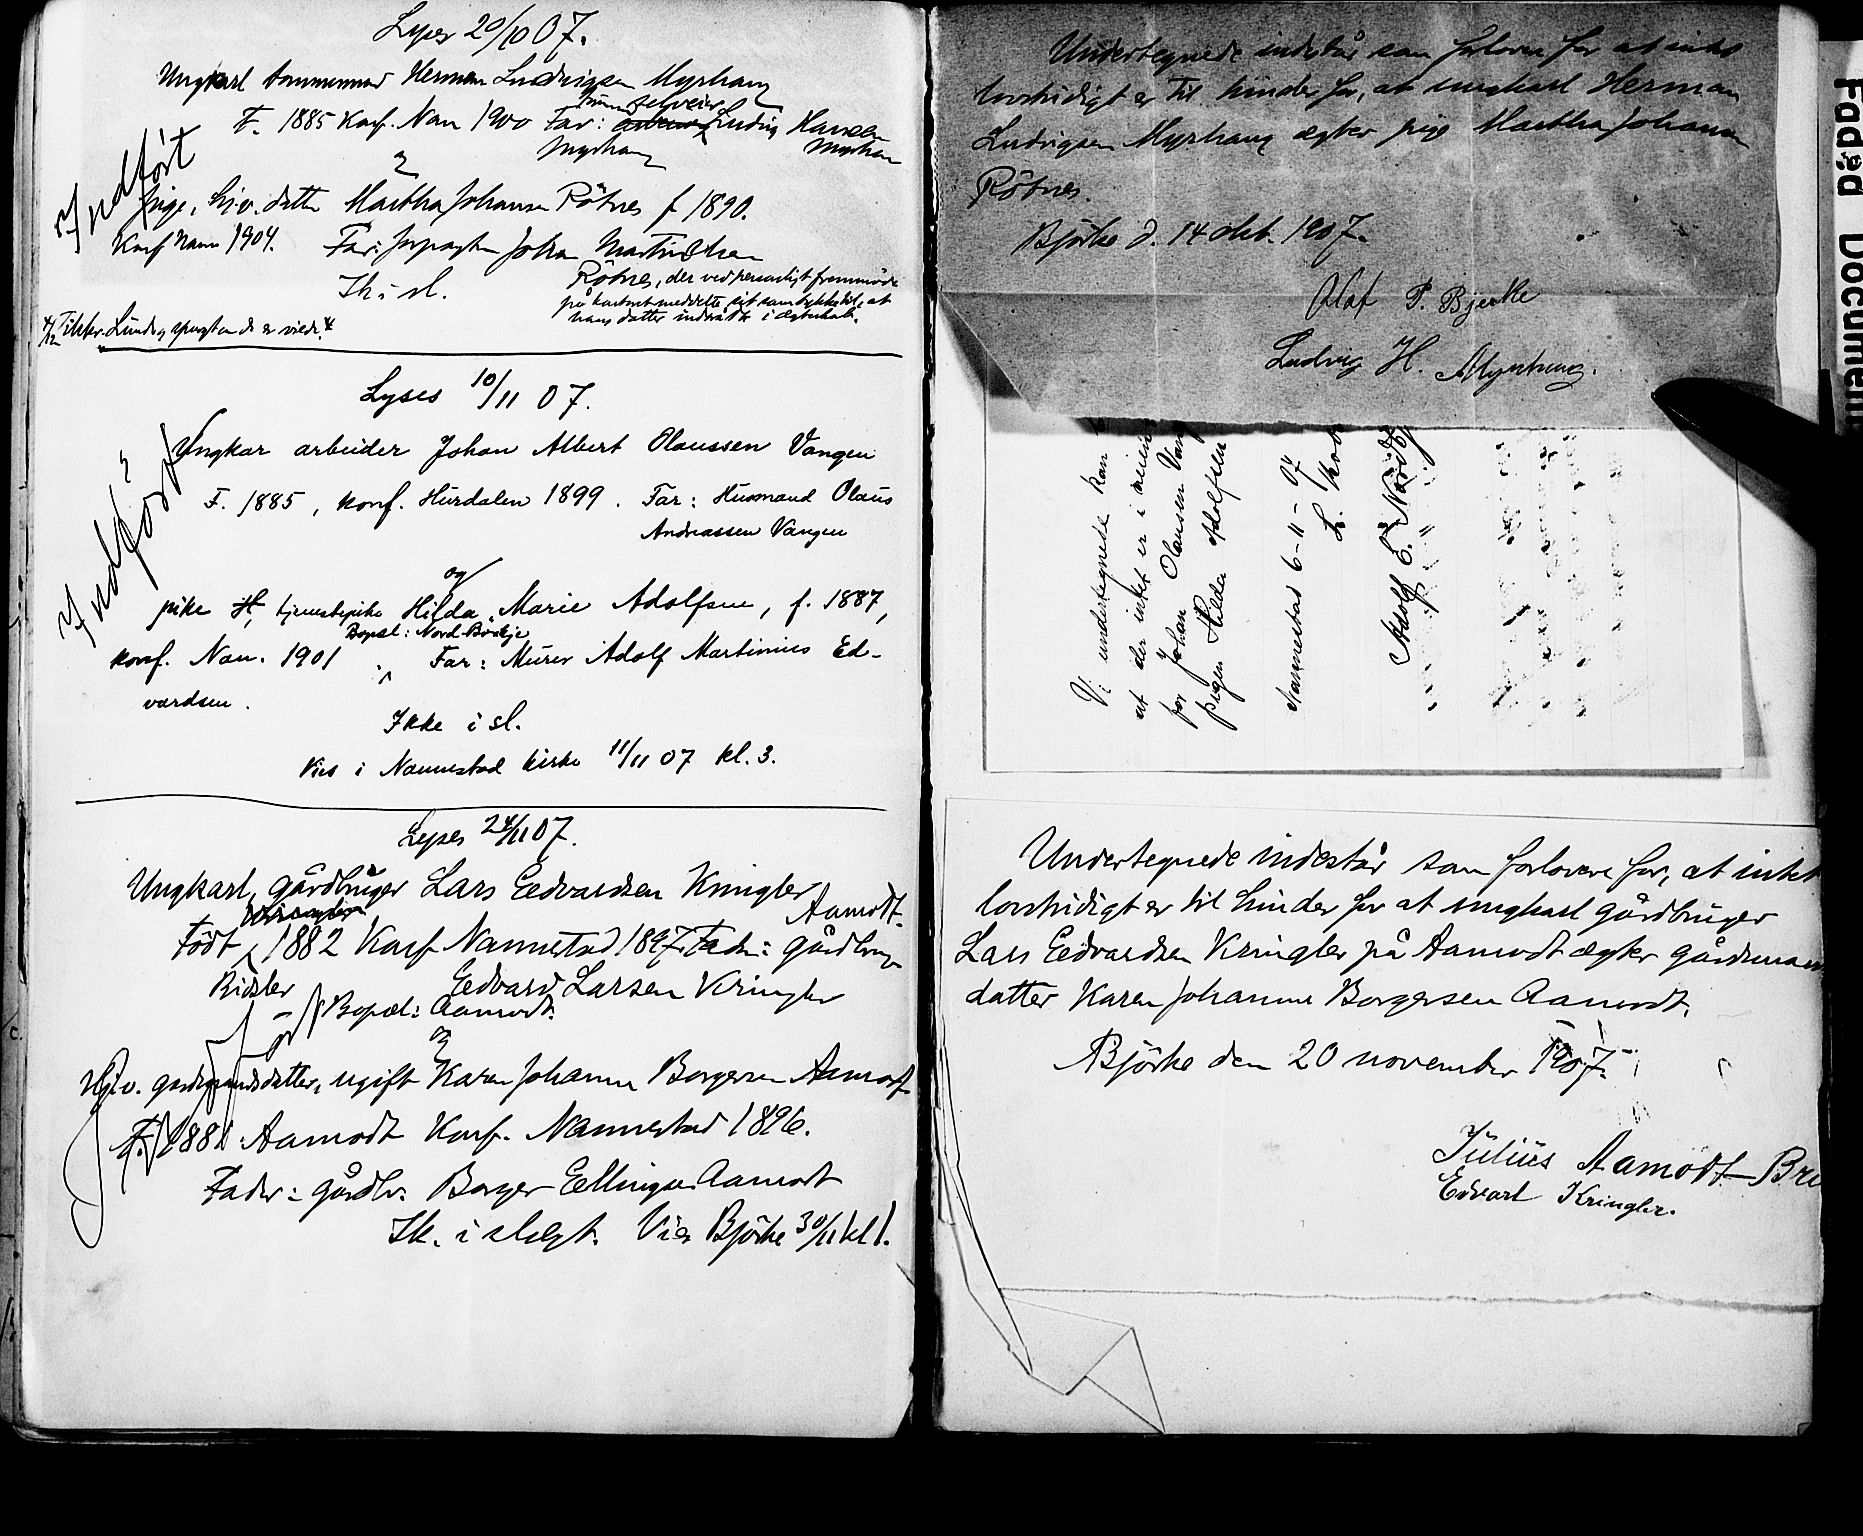 Lyses 20/10 07.
Ungkarl tømmermand Herman Ludvigsen Myrhaug
tømmerselveier
F. 1885 Konf. Nan 1900 Far: Ludvig Hansen
Myrhaug
Indført
og
pige, hjv. datter Martha Johansen Rötnes f 1890.
Konf Nann 1904. Far: Johan Martin
Ik i sl. Rötnes, der ved personligt fremmöde
på kontoret meddelte sit samtykke til, at
hans datter indtrådte i ægteskab.
Lyses 10/11 07.
Indført
Ungkar arbeider Johan Albert Olaussen Vangen
F. 1885, konf. Hurdalen 1899. Far: Husmand Olaus
Andreassen Vangen
og
pike H, tjenestepike Hilda Marie Adolfsen, f. 1887,
Bopæl: Nord-Börkje
konf. Nan. 1901, Far: Murer Adolf Martinius Ed-
vardsen.
Ikke i sl.
Vies i Nannestad kirke 11/11 07 kl. 3.
Lyses 24/11 07.
Ungkarl, gårdbruger Lars Eedvardsen Kringler
Aamodt.
Født 1882 Konf Nannestad 1897. Fader: gårdbruger
Eedvard Larsen Kringler
Bopæl: Aamodt.
og
Hjv. gårdmandsdatter, ugift Karen Johanne Borgersen Aamodt
F. 1881 Aamodt Konf. Nannestad 1896.
Fader: gårdbr. Borger Ellingsen Aamodt
Ik. i slægt. Vies Bjørke 30/11 kl 1.
Undertegnede indestår som forlovere for at intet
lovstridigt er til hinder for, at ungkarl Herman
Ludvigsen Myrhaug ægter pige Martha Johansen
Rötnes.
Björke d. 14 okt. 1907.
Olaf P. Bjerke
Ludvig H. Myrhaug.
Vi undertegnede kan
at der intet er i veien
for Johan Olaussen Vang
pigen Hilda Adolfsen
Nannestad 6-11-07
Adolf E. Nordby
Undertegnede indestår som forlovere for, at intet
lovstridigt er til hinder for at ungkarl gårdbruger
Lars Eedvardsen Kringler på Aamodt ægter gårdmands
datter Karen Johanne Borgersen Aamodt.
Björke den 20 november 1907.
Julius Aamodt Bre
Edvart Kringler.